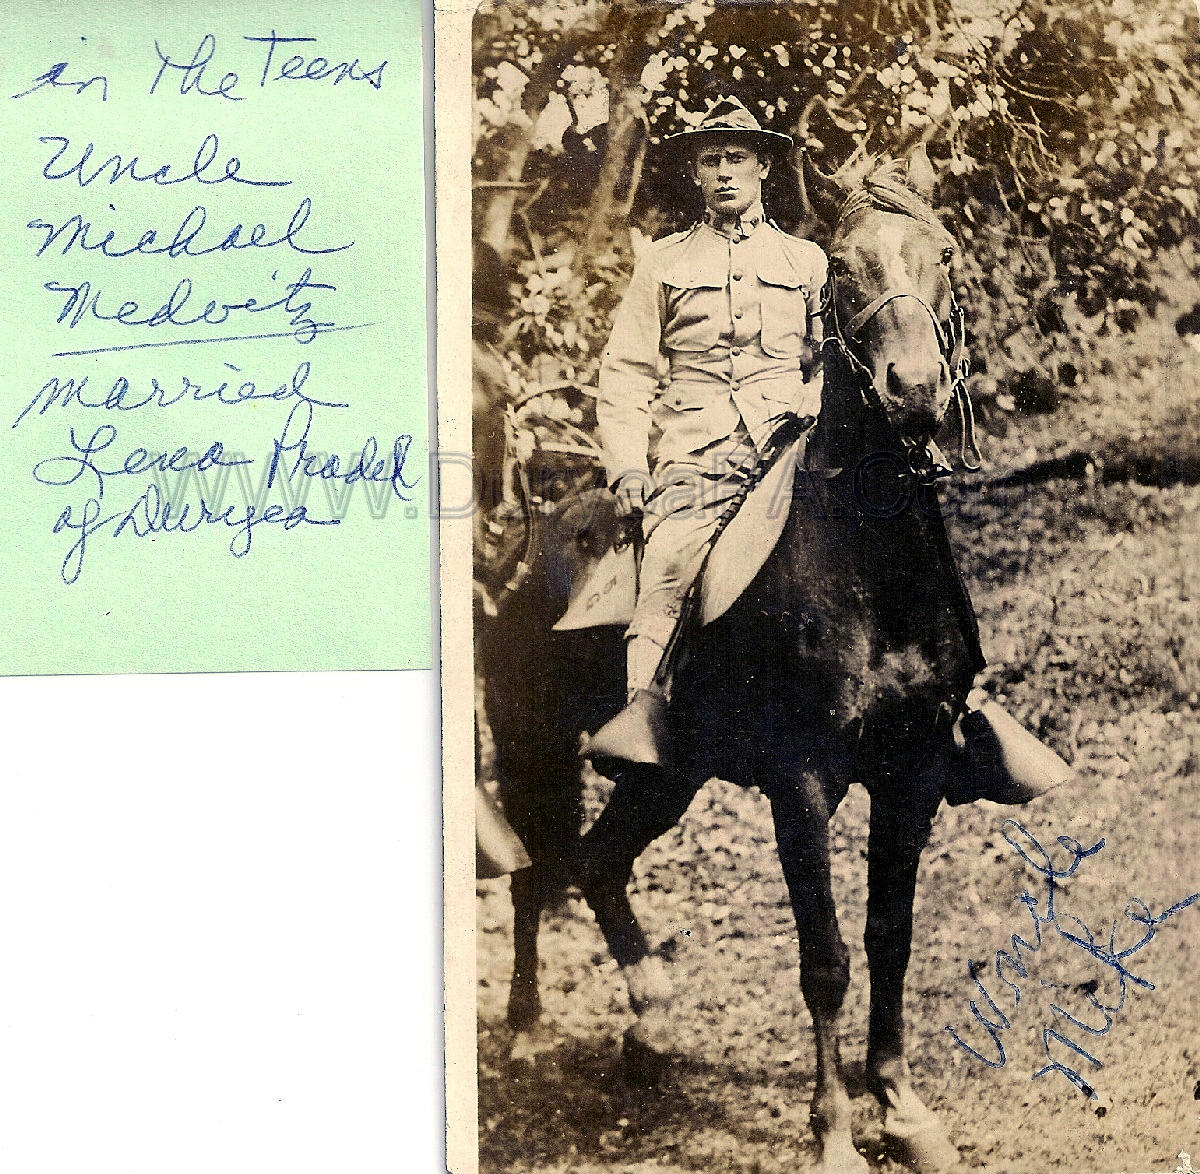 in The Teens
Uncle
Michael
Medvitz
married
Lena Pradel
of Duryea
www.DuryeaPA.Com
Uncle
Mike